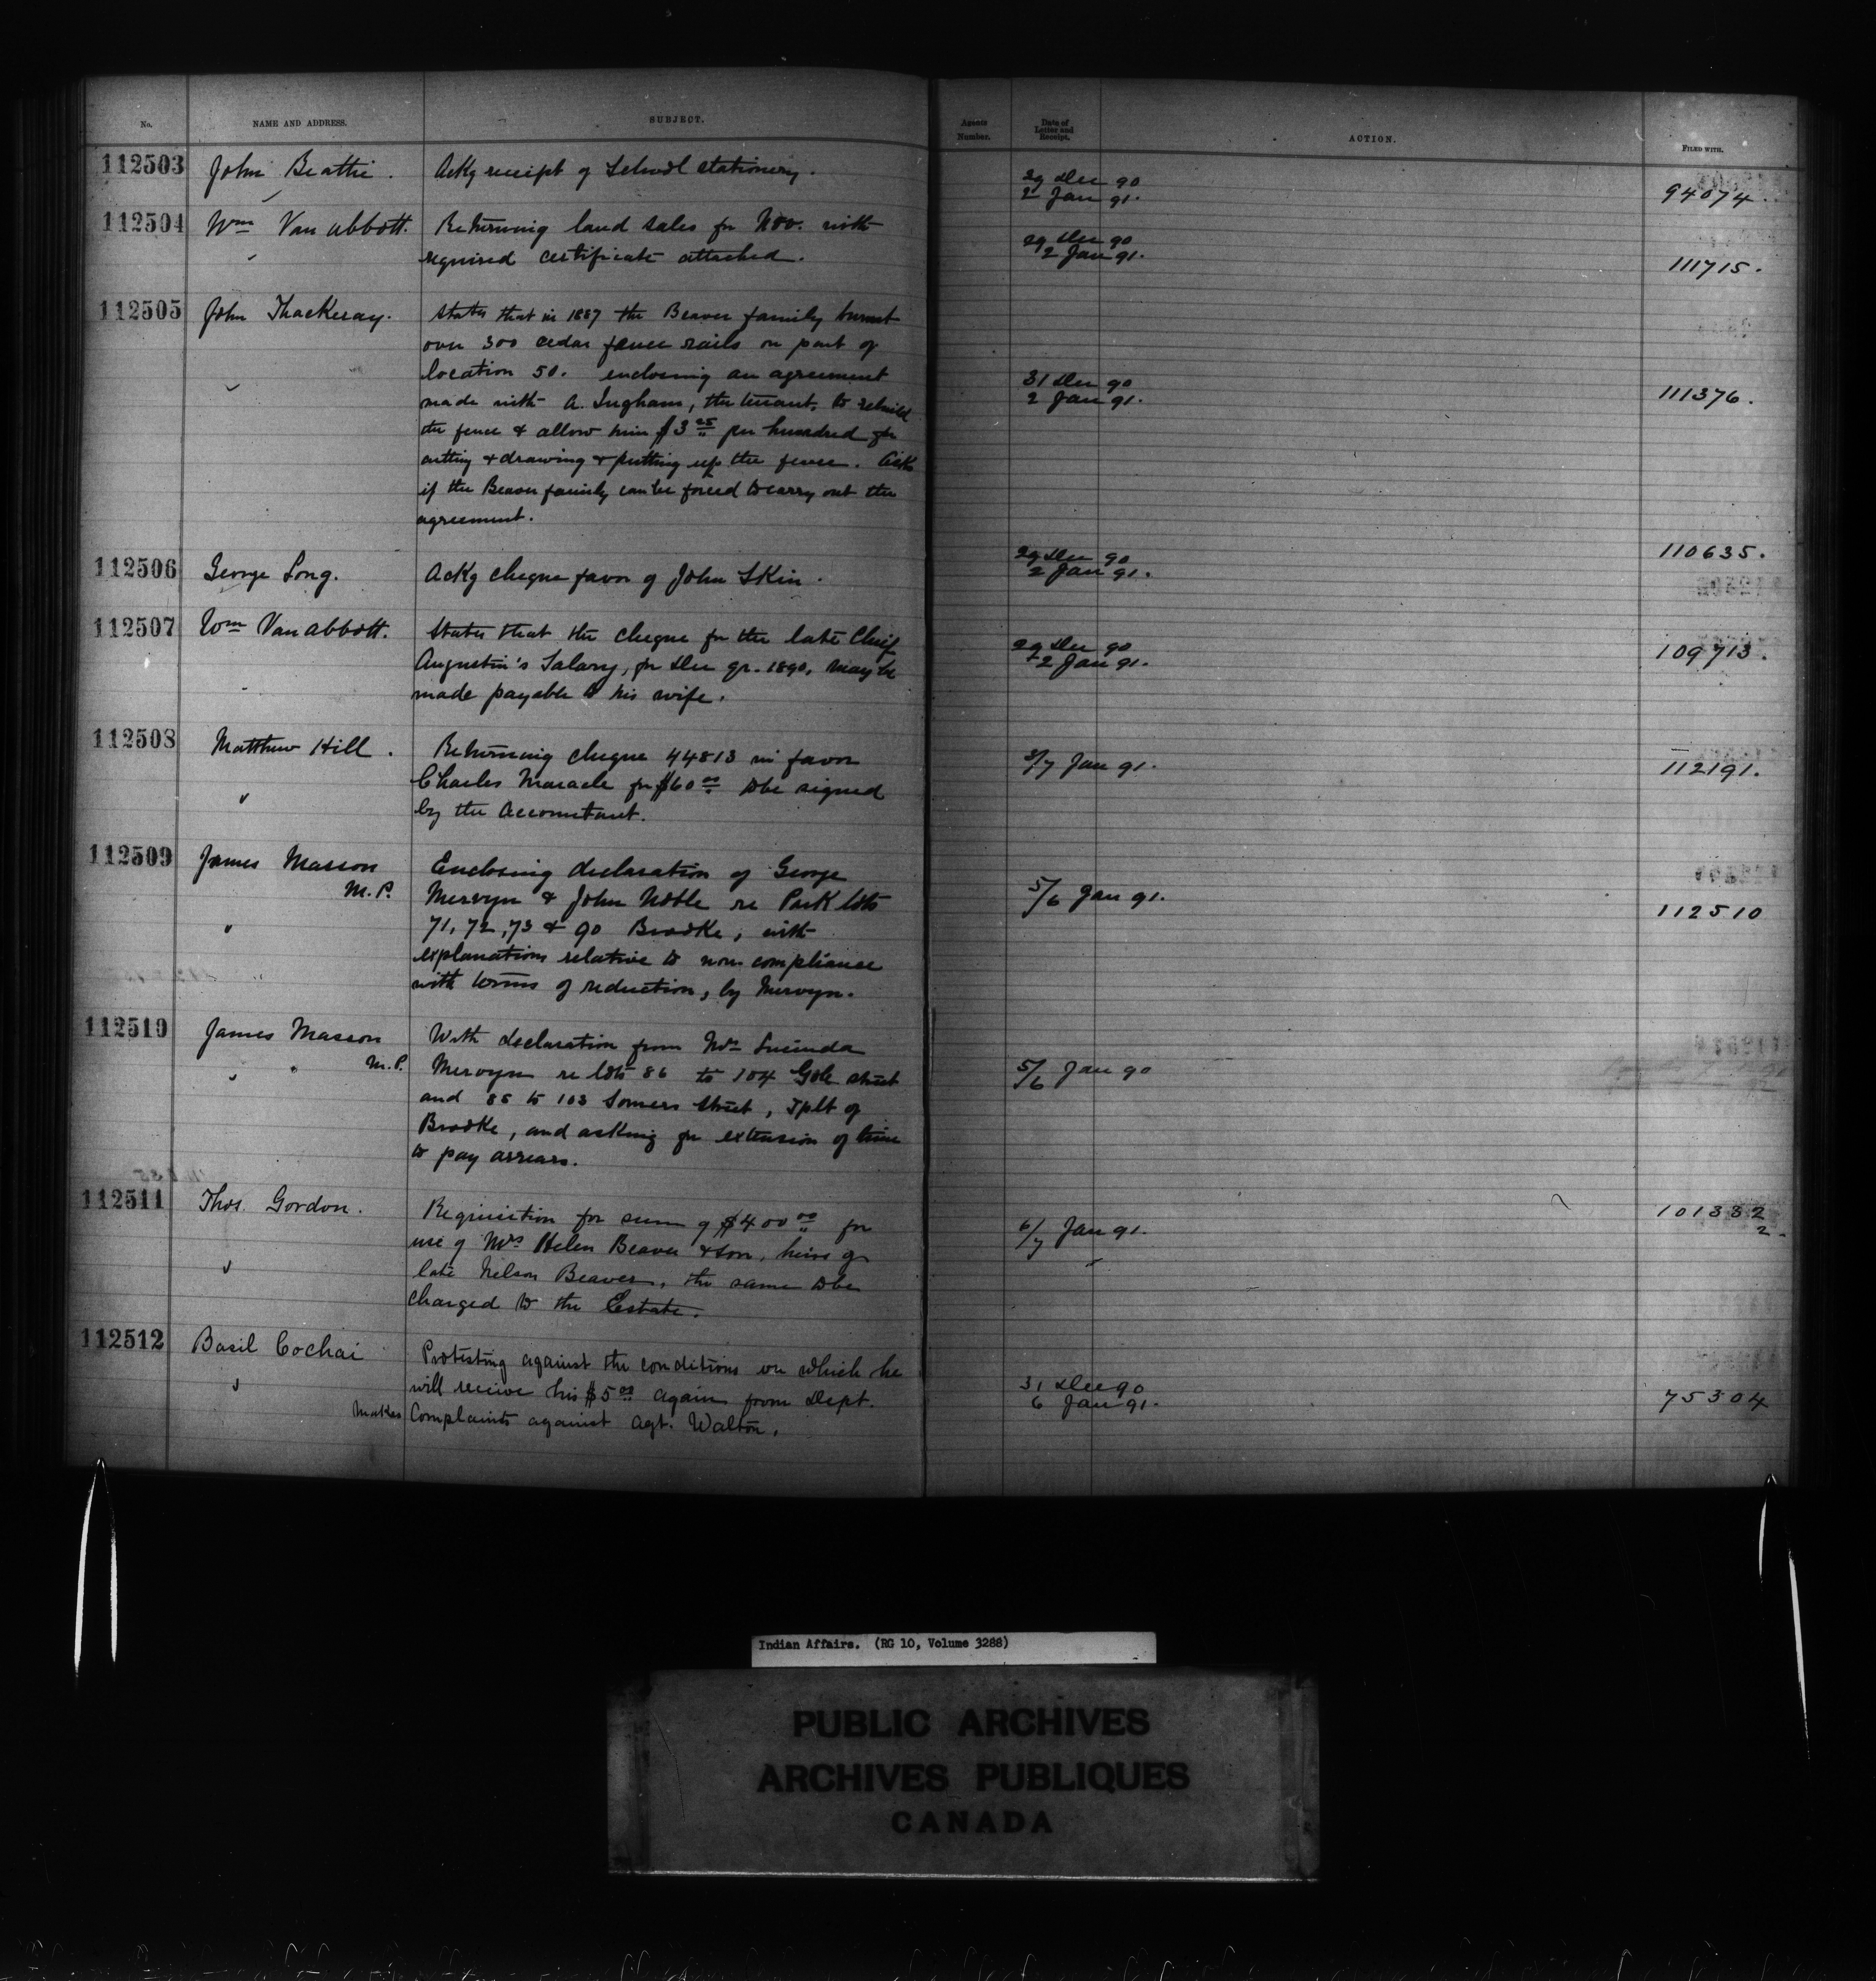 No. NAME AND ADDRESS. SUBJECT. Agents Number. Date of Letter and Receipt. ACTION. FILED WITH.
112503 John Beattie. Ackg receipt of School stationery. 29 Dec 90
2 Jan 91. 94074.
112504 Wm Van abbott. Returning land sales for Nov. with 29 Dec 90
required certificate attached. 2 Jan 91. 111715.
112505 John Thackeray. States that in 1887 the Beaver family burnt
over 300 cedar fence rails on part of
location 50. enclosing an agreement 31 Dec 90
made with A. Ingham, the tenant, to rebuild 2 Jan 91. 111376.
the fence & allow him $3 25 per hundred for
cutting & drawing & putting up the fence. Asks
if the Beaver family can be forced to carry out the
agreement.
112506 George Long. Ackg cheque favor of John Skin. 29 Dec 90
2 Jan 91. 110635.
112507 Wm Van abbott. States that the cheque for the late Chief 29 Dec 90
Augustin's Salary, for Dec qr. 1890, may be 2 Jan 91. 109713.
made payable to his wife.
112508 Matthew Hill. Returning cheque 44813 in favor 3/7 Jan 91. 112191.
Charles Maracle for $60 00 to be signed
by the Accountant.
112509 James Masson Enclosing declaration of George
M.P. Mervyn & John Noble re Park lots 5/6 Jan 91. 112510
71, 72, 73 & 90 Brooke, with
explanations relative to non compliance
with terms of reduction, by Mervyn.
112510 James Masson With declaration from Mrs Lucinda
M.P. Mervyn re lots 86 to 104 Gole street 5/6 Jan 90
and 85 to 103 Somers Street, Tplt of
Brooke, and asking for extension of time
to pay arrears.
112511 Thos. Gordon. Requisition for sum of $400 00 for 6/7 Jan 91. 101332
2.
use of Mrs Helen Beaver & son, heirs of
late Nelson Beaver, the same to be
charged to the Estate.
112512 Basil Cochai Protesting against the conditions on which he
will receive his $5 00 again from Dept. 31 Dec 90
Makes Complaints against Agt. Walton. 6 Jan 91. 75304
Indian Affairs. (RG 10, Volume 3288)
PUBLIC ARCHIVES
ARCHIVES PUBLIQUES
CANADA